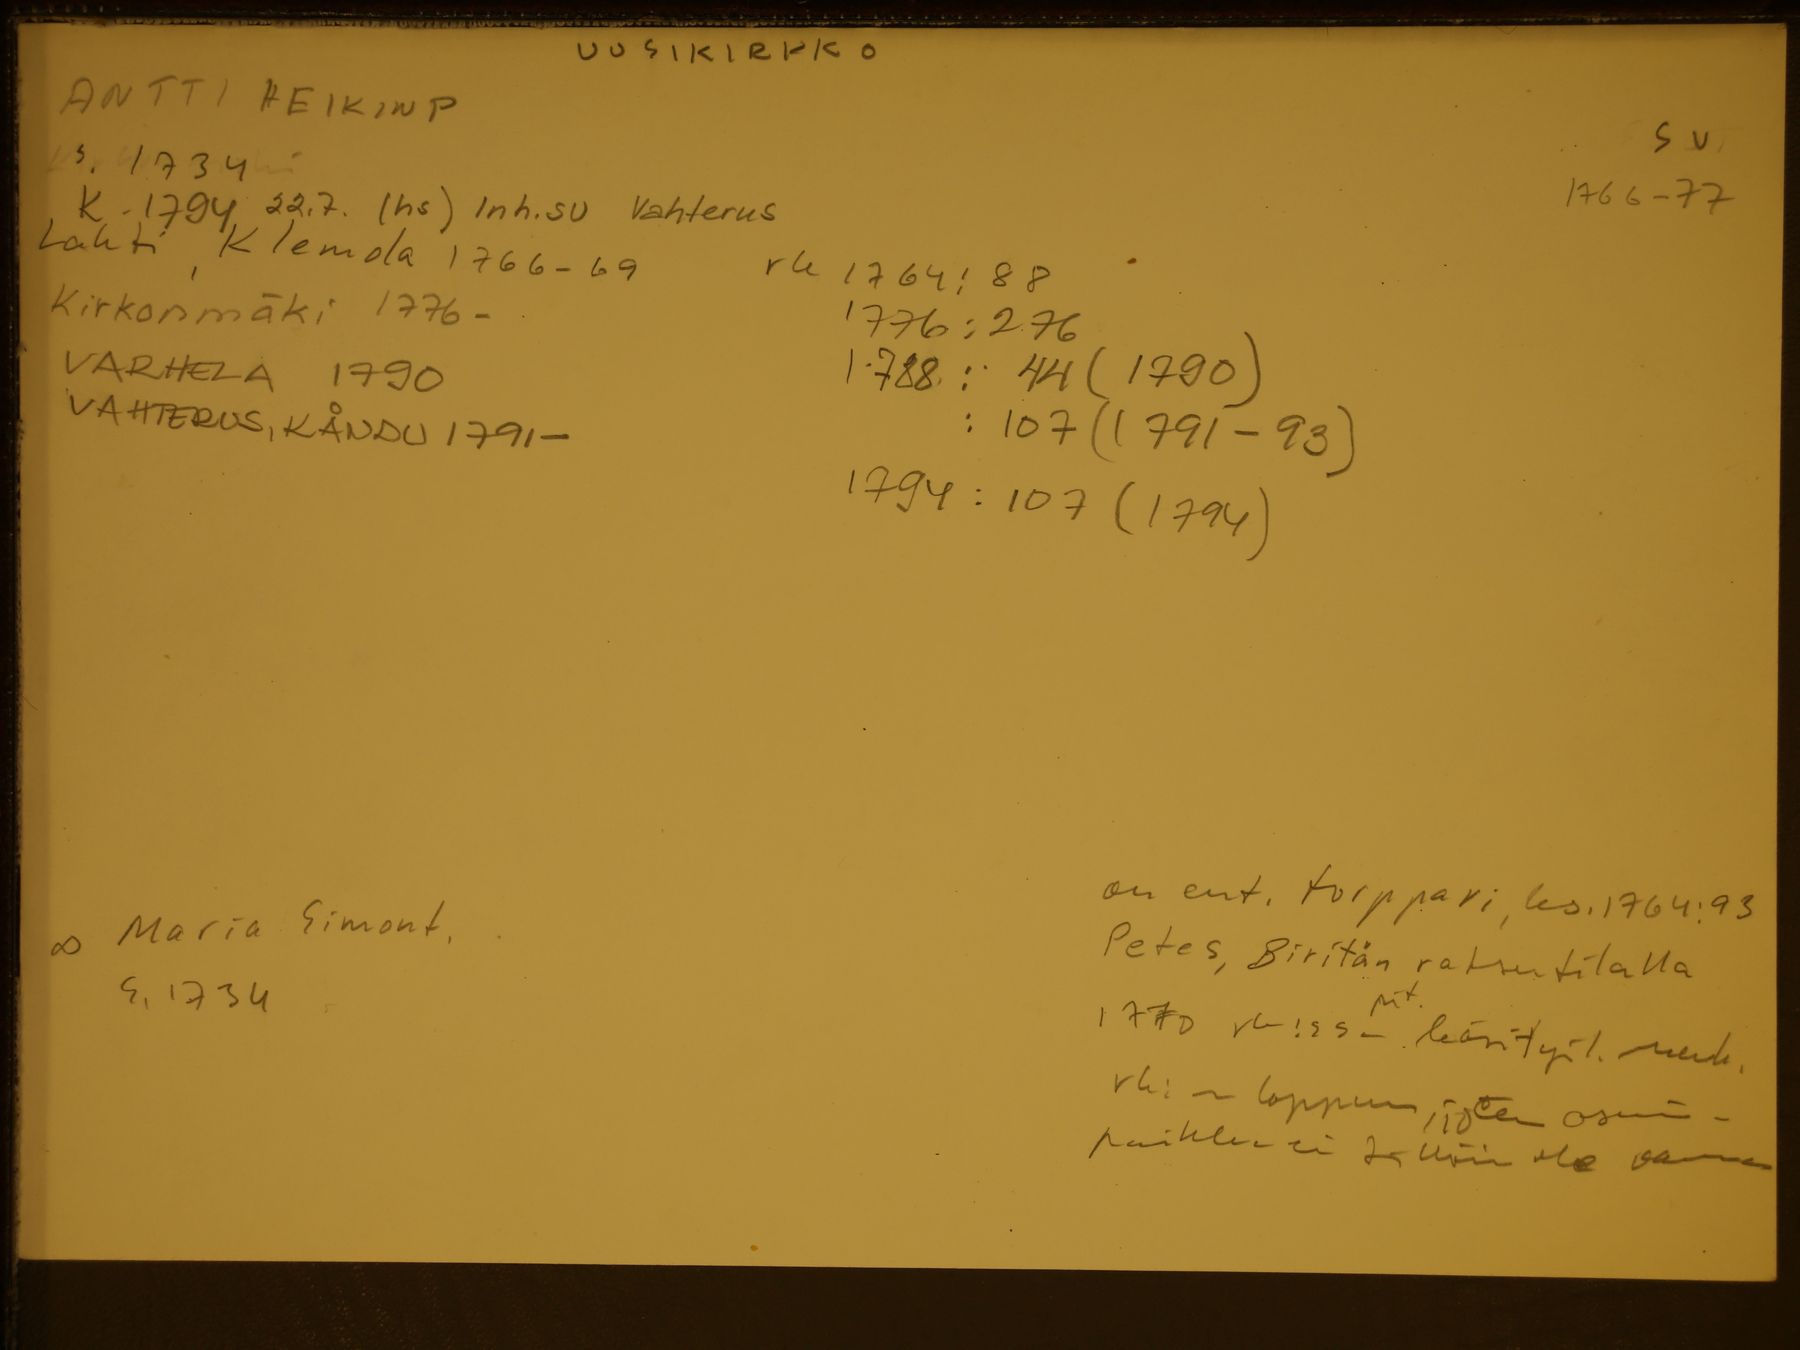 UUSIKIRKKO
ANTTI HEIKINP
SU
s. 1734
1766-77
K. 1794 22.7. (hs) Inh.SU Vahterus
Lahti, Klemola 1766-69
rk 1764: 88
Kirkonmäki 1776-
1776: 276
VARHELA 1790
1788: 44 (1790)
VAHTERUS, KÅNDU 1791-
: 107 (1791-93)
1794: 107 (1794)
∞ Maria Simont.
s. 1734
on ent. torppari, ks. 1764:93
Petes, Biritän ratsutilalla
1770 rk:ssa pit. käsityöl.
rk:n loppuun, joten asuin-
paikka ei tällöin ole